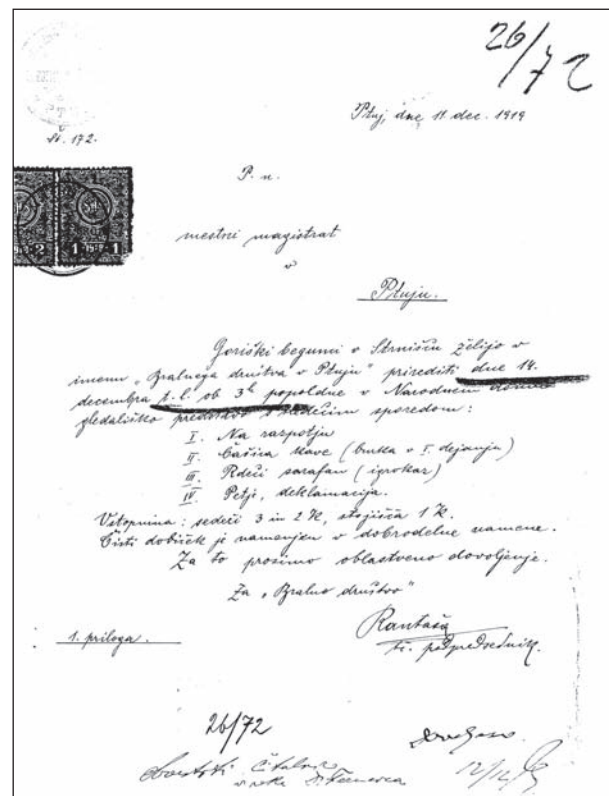 26/72
Ptuj, dne 11. dec. 1919
Št. 172.
P. n.
mestni magistrat
v
Ptuju.
Goriški begunci v Strnišču želijo v
imenu „Bralnega društva v Ptuju" prirediti dne 14.
decembra t. l. ob 3h popoldne v Narodnem domu
gledališko predstavo s sledečim sporedom:
I. Na razpotju
II. Čašica kave (burka v I. dejanju)
III. Rdeči sarafan (igrokaz)
IV. Petje, deklamacija.
Vstopnina: sedeži 3 in 2 K, stojišča 1 K.
Čisti dobiček je namenjen v dobrodelne namene.
Za to prosimo oblastveno dovoljenje.
Za „Bralno društvo"
t. č. podpredsednik.
1. priloga.
26/72